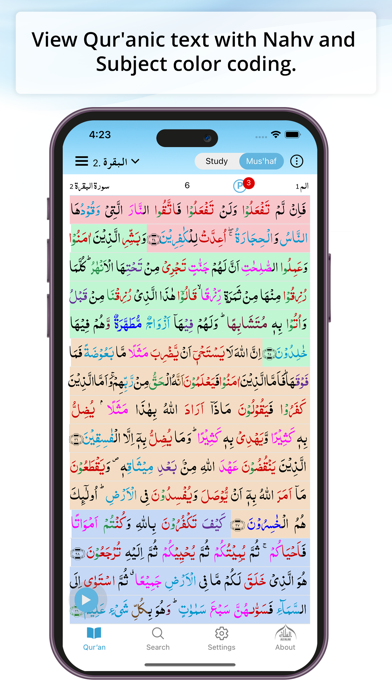 View Qur'anic text with Nahv and
Subject color coding.
4:23
2. البقرة
Study
Mus'haf
سورة البقرة 2
6
P
3
الم 1
فَاِنْ لَّمْ تَفْعَلُوْا وَلَنْ تَفْعَلُوْا فَاتَّقُوا النَّارَ الَّتِيْ وَقُوْدُهَا
النَّاسُ وَالْحِجَارَةُ ۖ اُعِدَّتْ لِلْكٰفِرِيْنَ ۝ وَبَشِّرِ الَّذِيْنَ اٰمَنُوْا
وَعَمِلُوا الصّٰلِحٰتِ اَنَّ لَهُمْ جَنّٰتٍ تَجْرِيْ مِنْ تَحْتِهَا الْاَنْهٰرُ ؕ كُلَّمَا
رُزِقُوْا مِنْهَا مِنْ ثَمَرَةٍ رِّزْقًا ۙ قَالُوْا هٰذَا الَّذِيْ رُزِقْنَا مِنْ قَبْلُ
وَاُتُوْا بِهٖ مُتَشَابِهًا ؕ وَلَهُمْ فِيْهَآ اَزْوَاجٌ مُّطَهَّرَةٌ وَّهُمْ فِيْهَا
خٰلِدُوْنَ ۝ اِنَّ اللّٰهَ لَا يَسْتَحْيٖٓ اَنْ يَّضْرِبَ مَثَلًا مَّا بَعُوْضَةً فَمَا
فَوْقَهَا ؕ فَاَمَّا الَّذِيْنَ اٰمَنُوْا فَيَعْلَمُوْنَ اَنَّهُ الْحَقُّ مِنْ رَّبِّهِمْ ۚ وَاَمَّا الَّذِيْنَ
كَفَرُوْا فَيَقُوْلُوْنَ مَاذَآ اَرَادَ اللّٰهُ بِهٰذَا مَثَلًا ۘ يُضِلُّ
بِهٖ كَثِيْرًا وَّيَهْدِيْ بِهٖ كَثِيْرًا ؕ وَمَا يُضِلُّ بِهٖٓ اِلَّا الْفٰسِقِيْنَ ۝
الَّذِيْنَ يَنْقُضُوْنَ عَهْدَ اللّٰهِ مِنْۢ بَعْدِ مِيْثَاقِهٖ ۪ وَيَقْطَعُوْنَ
مَآ اَمَرَ اللّٰهُ بِهٖٓ اَنْ يُّوْصَلَ وَيُفْسِدُوْنَ فِي الْاَرْضِ ؕ اُولٰٓئِكَ
هُمُ الْخٰسِرُوْنَ ۝ كَيْفَ تَكْفُرُوْنَ بِاللّٰهِ وَكُنْتُمْ اَمْوَاتًا
فَاَحْيَاكُمْ ۚ ثُمَّ يُمِيْتُكُمْ ثُمَّ يُحْيِيْكُمْ ثُمَّ اِلَيْهِ تُرْجَعُوْنَ ۝
هُوَ الَّذِيْ خَلَقَ لَكُمْ مَّا فِي الْاَرْضِ جَمِيْعًا ۗ ثُمَّ اسْتَوٰٓى اِلَى
السَّمَآءِ فَسَوّٰىهُنَّ سَبْعَ سَمٰوٰتٍ ؕ وَهُوَ بِكُلِّ شَيْءٍ عَلِيْمٌ
Qur'an
Search
Settings
About